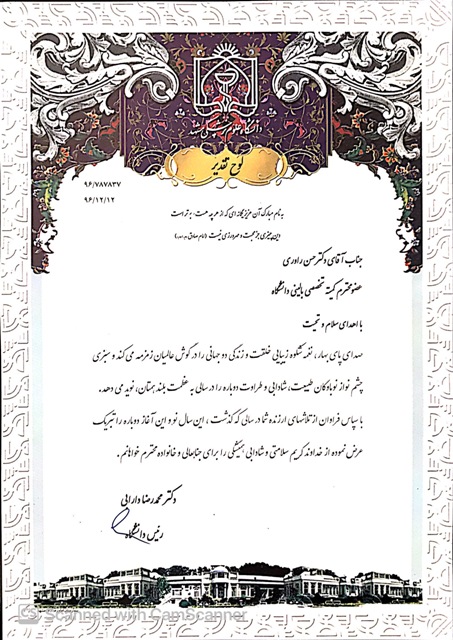 دانشگاه علوم پزشکی مشهد
لوح تقدیر
۹۶/۷۸۷۸۳۷
۹۶/۱۲/۱۲
به نام مبارک آن عزیز یگانه ای که از هر چه هست، برتر است
دین چیزی جز محبت و مهرورزی نیست (امام صادق علیه السلام)
جناب آقای دکتر حسن راوری
عضو محترم کمیته تخصصی بالینی دانشگاه
با اهدای سلام و تحیت
صدای پای بهار، نغمه شکوه زیبایی خلقت و زندگی دو جهانی را در گوش عالمیان زمزمه می کند و سبزی
چشم نواز نوباوگان طبیعت، شادابی و طراوت دوباره را در سالی به عظمت بلند بهتان، نوید می دهد.
با سپاس فراوان از تلاشهای ارزنده شما در سالی که گذشت، این سال نو و این آغاز دوباره را تبریک
عرض نموده از خداوند کریم سلامتی و شادابی همیشگی را برای جنابعالی و خانواده محترم خواهانم.
دکتر محمدرضا دارابی
رئیس دانشگاه
CS Scanned with CamScanner